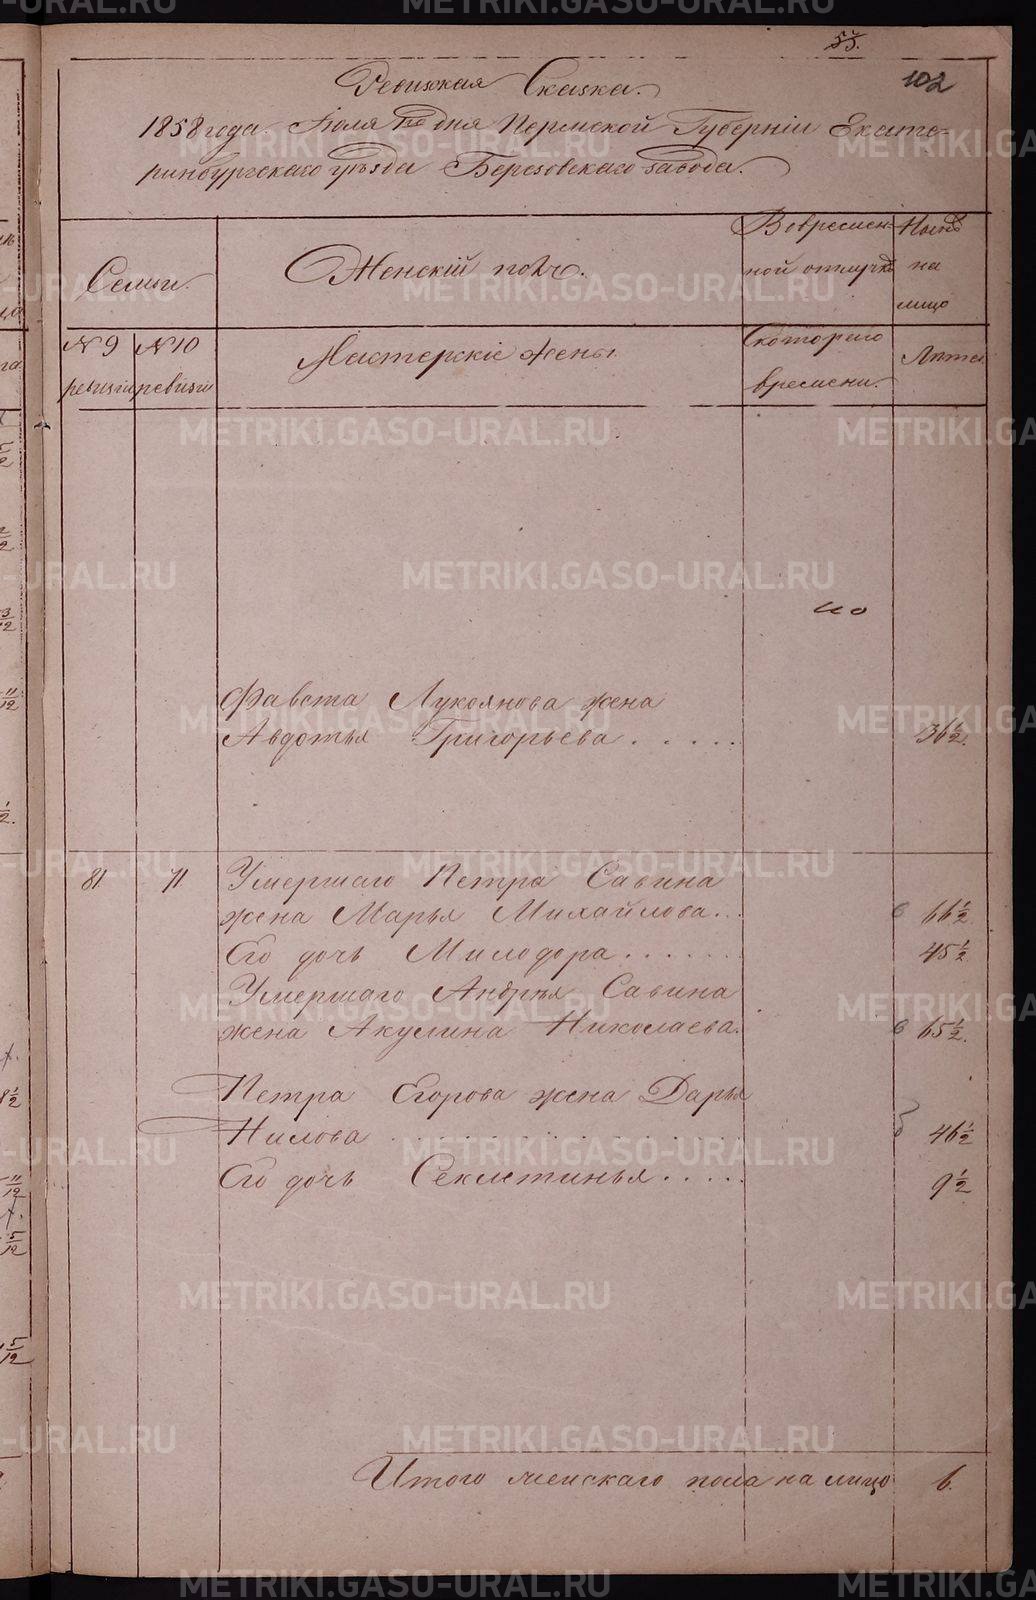 55.
102
Ревижкая Сказка.
1858 года Іюля дня Пермской Губерніи Екате-
ринбургскаго уѣзда Березовскаго завода.
Семьи.
Женскій полъ.
Вовремен-
ной отлучкѣ
Нынѣ
на
лицо
№ 9
ревизіи
№ 10
ревизіи
Мастерскіе жены
Скотораго
времени.
Лѣта
но
Фавста Лукоянова жена
Авдотья Григорьева. . . . . 36 ½.
81. 71. Умершаго Петра Савина
жена Марья Михайлова... 66 ½
Его дочь Милодора. . . . . . 45 ½
Умершаго Андрѣя Савина
жена Акулина Николаева. 65 ½.
Петра Егорова жена Дарья
Нилова . . . . . . . . . . . 46 ½
Его дочь Секлетинья. . . . . 9 ½
Итого женскаго пола на лицо 6.
METRIKI.GASO-URAL.RU